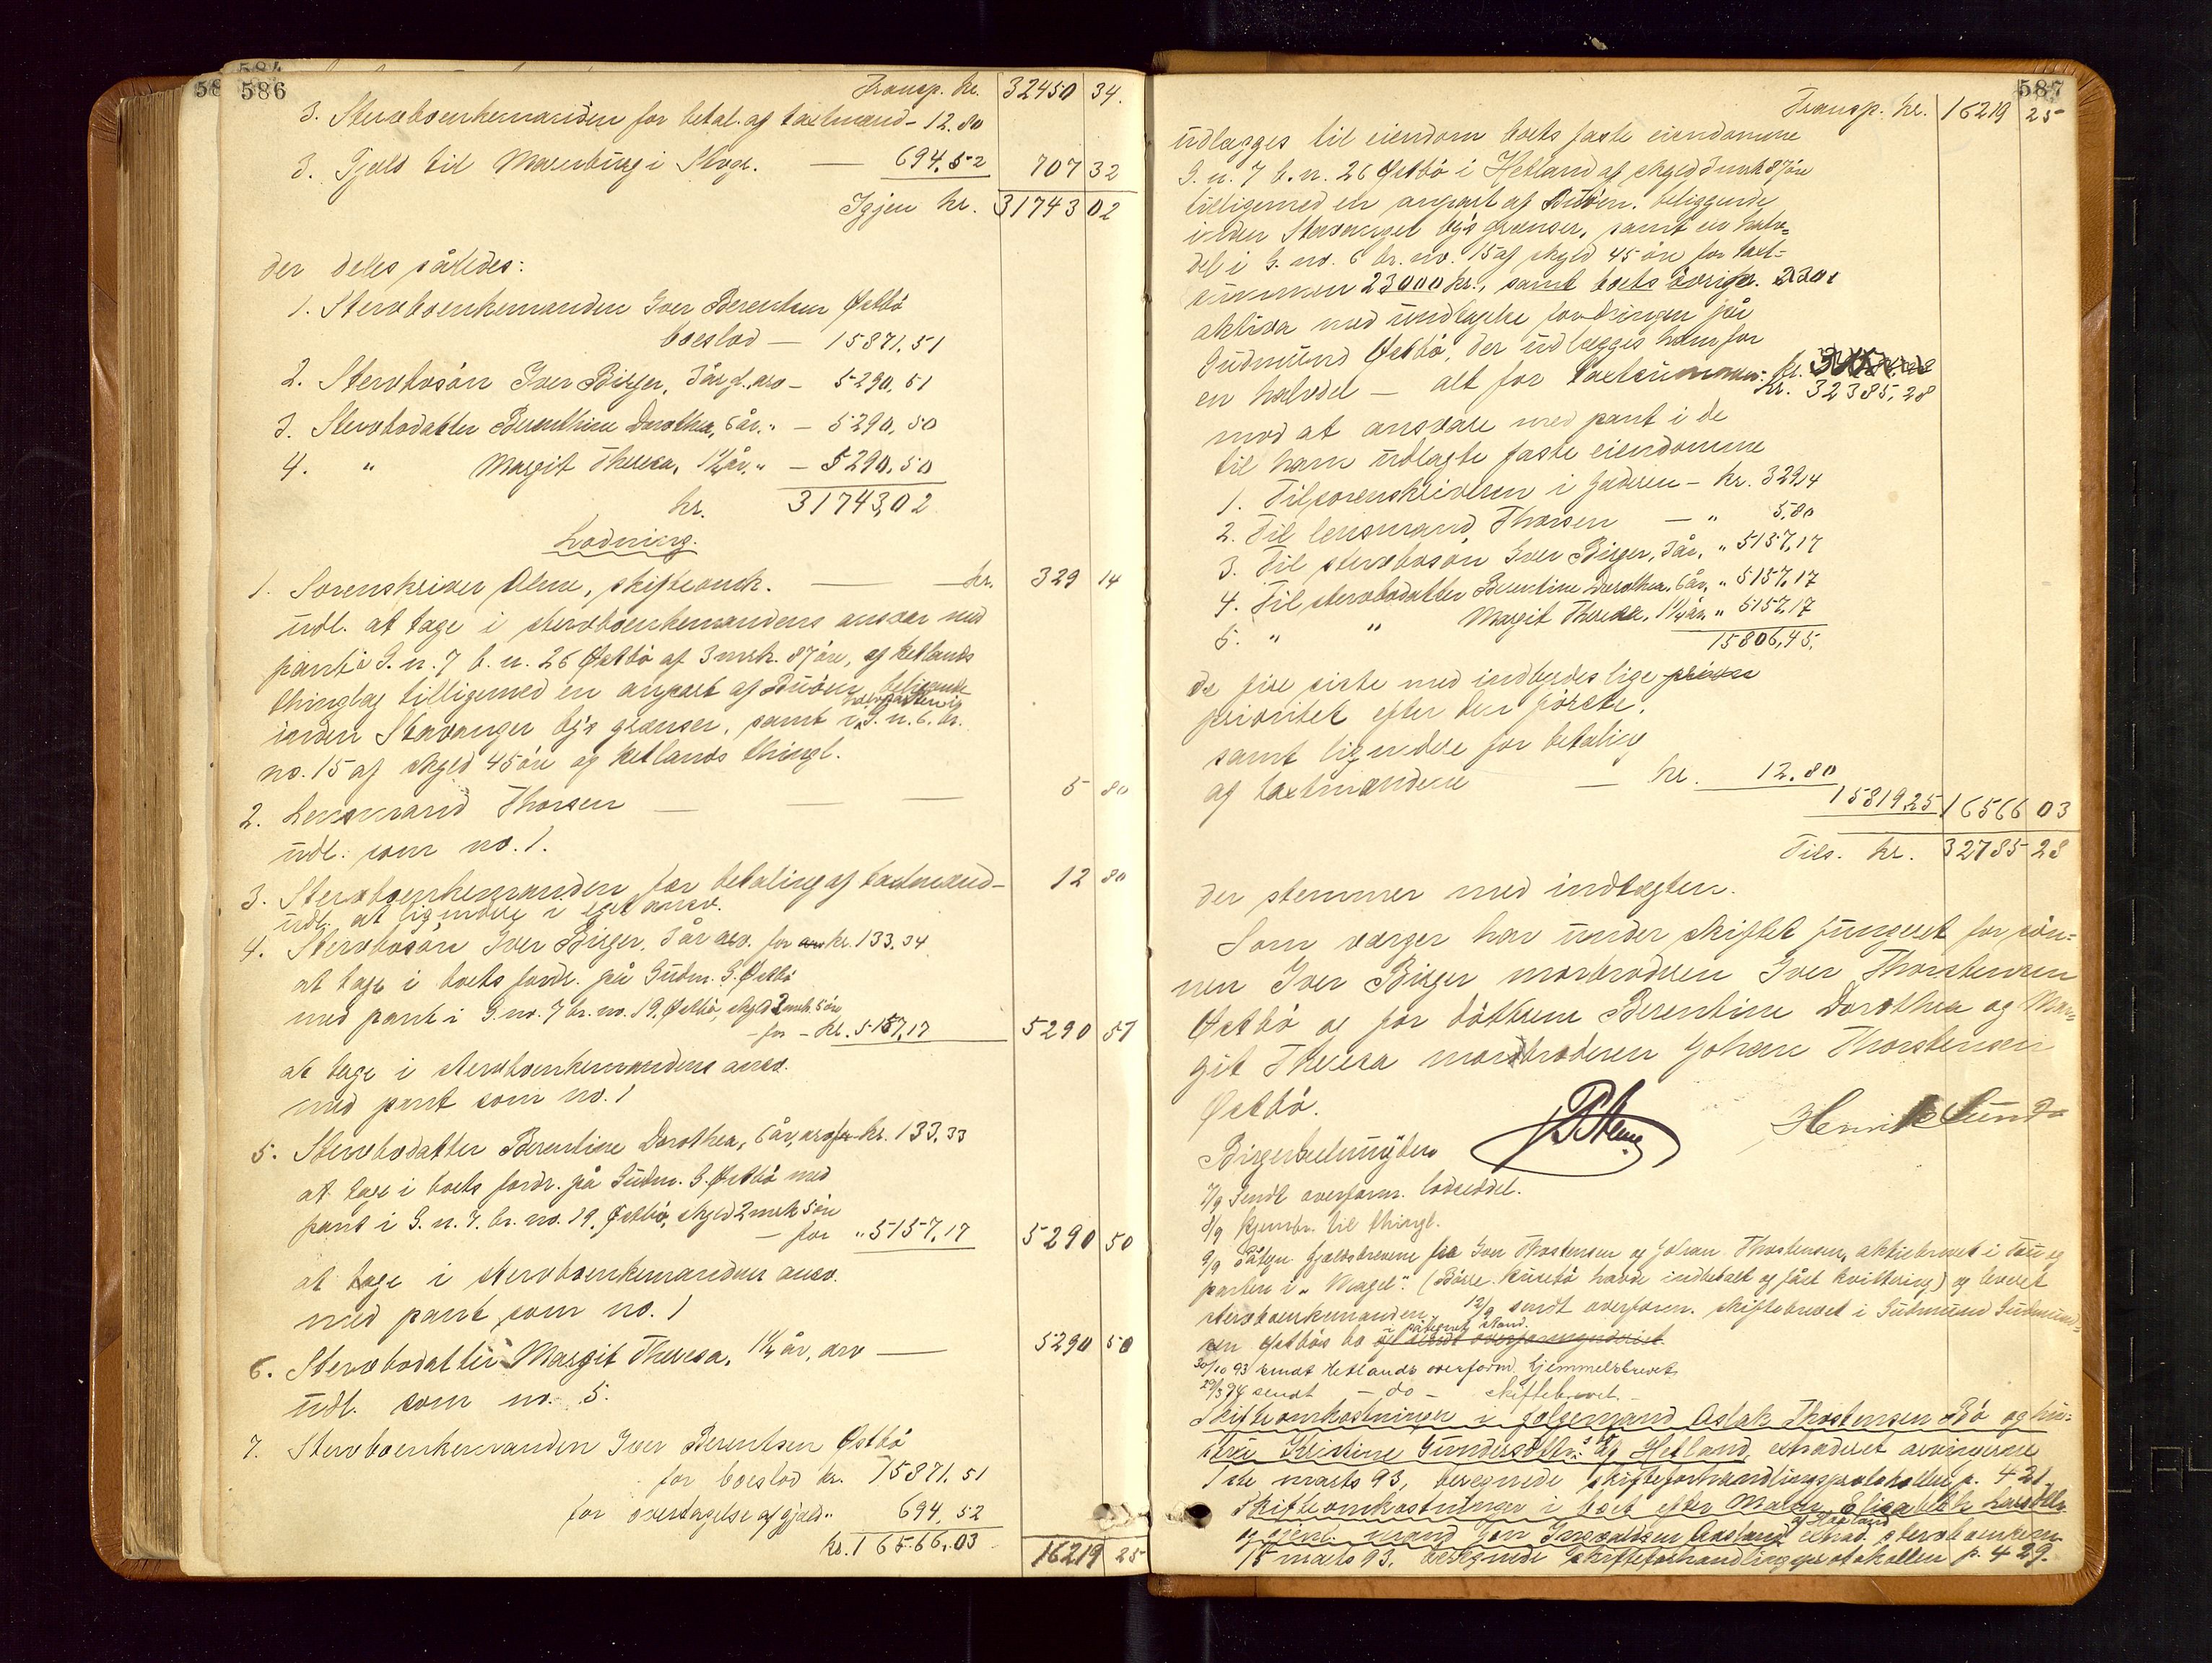 586
Transp. kr. 32450 34.
3. Stervboenkemanden for betal. af taxtmænd - 12.80
3. Gjæld til i Skoge. — 694.52 707 32
Igjen kr. 31743 02
der deles således:
1. Stervboenkemanden Iver Berentsen Østbö
boeslod — 15871.51
2. Stervbosön Iver Birger, 3 år g. arv - 5290.51
3. Stervbodatter Berenthine Dorothea, 6 år. " - 5290.50
4. " Margit Theresa, 1½ år. " - 5290.50
kr. 31743,02
Lodning.
1. Sorenskriver Olme, skifteomk. — kr. 329 14
udl. at tage i stervboenkemandens ansvar med
pant i G. n. 7 b. n. 26 Østbö af 3 mrk. 87 öre, af Hetlands
thinglag tilligemed en anpart af Buöen beliggende
inden Stavanger by's grænser, samt halvparten i G. n. 6. br.
no. 15 af skyld 45 öre af Hetlands thingl.
2. Lensmand Thorsen — 5 80
udl. som no. 1.
3. Stervboenkemanden for betaling af taxtmænd - 12 80
udl. at ligeledes i eget ansv.
4. Stervbosön Iver Birger, 3 år arv. for kr. 133.34
at tage i boets fordr. på Gudm. G. Østbö
med pant i G. no. 7 br. no. 19, Østbö, skyld 2 mrk. 5 öre
- for - kr. 5157,17 5290 51
at tage i stervboenkemandens ansv.
med pant som no. 1
5. Stervbodatter Berentine Dorothea, 6 år, arv for kr. 133.33
at tage i boets fordr. på Gudm. G. Østbö med
pant i G. n. 7. br. no. 19. Østbö, skyld 2 mrk 5 öre
— for " 5157.17 5290 50
at tage i stervboenkemandens ansv.
med pant som no. 1
6. Stervbodatter Margit Theresa, 1½ år, arv — 5290 50
udl. som no. 5.
7. Stervboenkemanden Iver Berentsen Østbö
for boeslod kr. 15871.51
for overtagelse af gjæld " 694.52
kr. 16566.03
16219 25
587
Transp. kr. 16219 25
udlægges til eiendom boets faste eiendomme
G. n. 7 b. n. 26 Østbö i Hetland af skyld 3 mrk 87 öre
tilligemed en anpart af Buöen. beliggende
inden Stavanger by's grænser, samt en halv-
del i G. no. 6 br. no. 15 af skyld 45 öre for taxt-
summen 23000 kr., samt boets övrige
aktiva med undtagelse fordringen på
Gudmund Østbö, der udlægges ham for
en halvdel — alt for taxtsummen: kr.
kr. 32385,28
mod at ansvare med pant i de
til ham udlagte faste eiendomme
1. Til sorenskriveren i Jæderen - kr. 329,14
2. Til lensmand Thorsen — " 5,80
3. Til stervbosön Iver Birger, 3 år, " 5157,17
4. Til stervbodatter Berentine Dorothea, 6 år, " 5157,17
5. " " Margit Theresa, 1½ år, " 5157,17
15806,45.
de fire siste med indbyrdes lige
prioritet efter den förste.
samt ligeledes for betaling
af taxtmændene — kr. 12.80
15819,25 16566 03
Tils. kr. 32785 28
der stemmer med indtægten.
Som værger har under skiftet fungeret for sön-
nen Iver Birger morbroderen Iver Thorstensen
Østbö og for döttrene Berentine Dorothea og Mar-
git Theresa morbroderen Johan Thorstensen
Østbö.
Henrik Lund
7/9 Sendt overform. lodseddel.
8/9 Hjembr. til thingl.
9/9 Påtegn. gjældsbrevene fra Iver Thorstensen og Johan Thorstensen, aktiebrevet i Tou og
parten i "Magel". ( havde indbetalt og fået kvittering) og leveret
stervboenkemanden. 12/9 sendt overform. skiftebrevet i Gudmund Gudmund-
sen Østbös bo i påtegnet stand. og sendt overformynderiet
30/10 93 sendt Hetlands overform. hjemmelsbrevet
29/3 94 sendt - do - skiftebrevet. -
Skifteomkostninger i folgemand Aslak Thorstensen Bö og hu-
stru Kristine Gundersdtr. af Hetland, extraderet arvingerne
1ste marts 93, beregnede skifteforhandlingsprotokollen p. 421
Skifteomkostninger i boet efter Malene Elisabeth Larsdtr.
og gjenl. mand Jon Aasland af Hetland extrad. stervboenkem.
15 marts 93. beregnede skifteforhandlingsprotokollen p. 429.